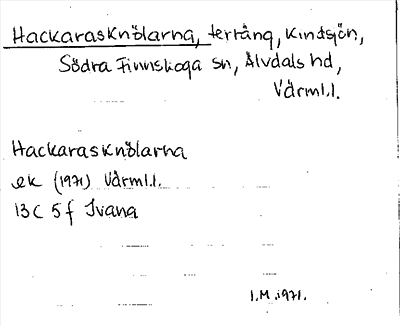 Hackarasknölarna, terräng, Kindsjön,
Södra Finnskoga sn, Älvdals hd,
Värml.l.
Hackarasknölarna
ek (1971) Värml.l.
13C 5f Ivana
I.M. 1971.